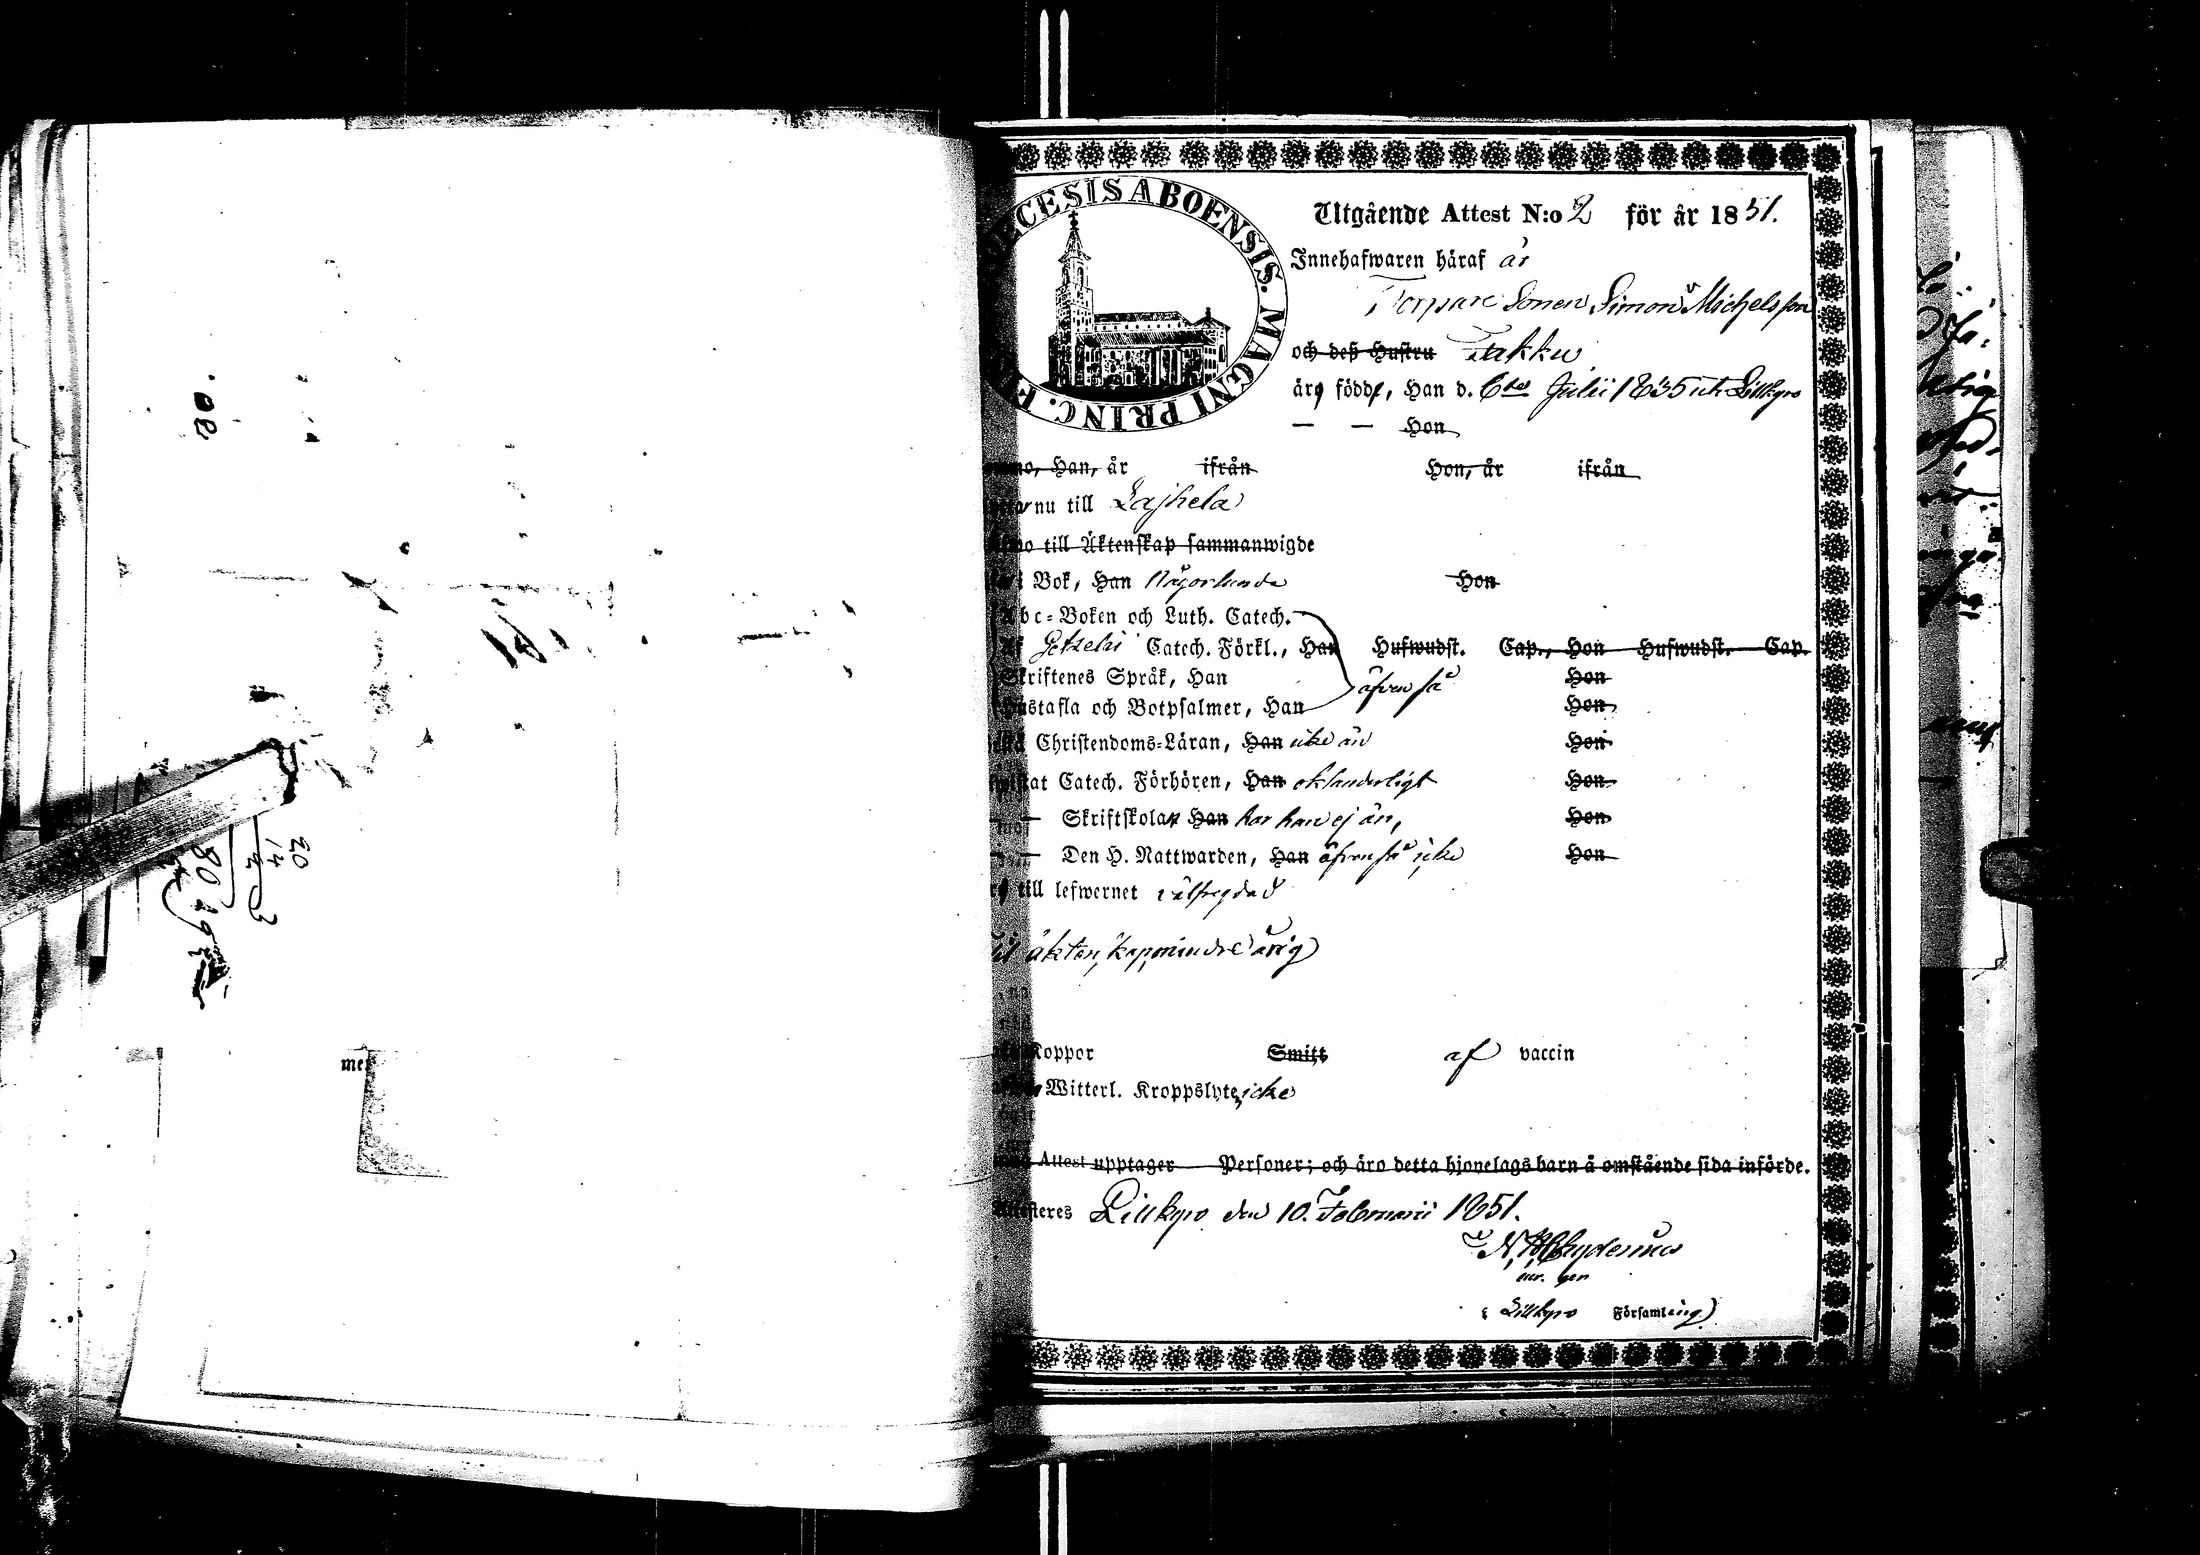 DIOECESIS ABOENSIS. MAGNI PRINC.
Utgående Attest N:o 2 för år 1851.
Innehafwaren häraf är
Torpare Sonen Simon Michelsson
och deß Hustru Takku
äro född, Han d. 6te Julii 1835 uti Lillkyro
— — Hon
Han, år ifrån Hon, år ifrån
nu till Lajhela
till Äktenskap sammanwigde
i Bok, Han Någorlunda Hon
Abc-Boken och Luth. Catech.
Af Getzelii Catech. Förkl., Han Hufwudst. Cap., Hon Hufwudst. Cap.
Skriftenes Språk, Han äfven så Hon
Hustafla och Botpsalmer, Han Hon
Christendoms-Läran, Han icke än Hon
Catech. Förhören, Han oklanderligt Hon
— Skriftskolan Han har han ej än, Hon
— Den H. Nattwarden, Han äfven så icke Hon
till lefwernet välfregdad
Till äktenskap, minderårig
Koppor Smitt af vaccin
Witterl. Kroppslyte, icke
Attest upptager Personer; och äro detta hjonelags barn å omstående sida införde.
Attesteres Lillkyro den 10. Februarii 1851.
Chydenius
i Lillkyro Församling
20
14
3
80
me